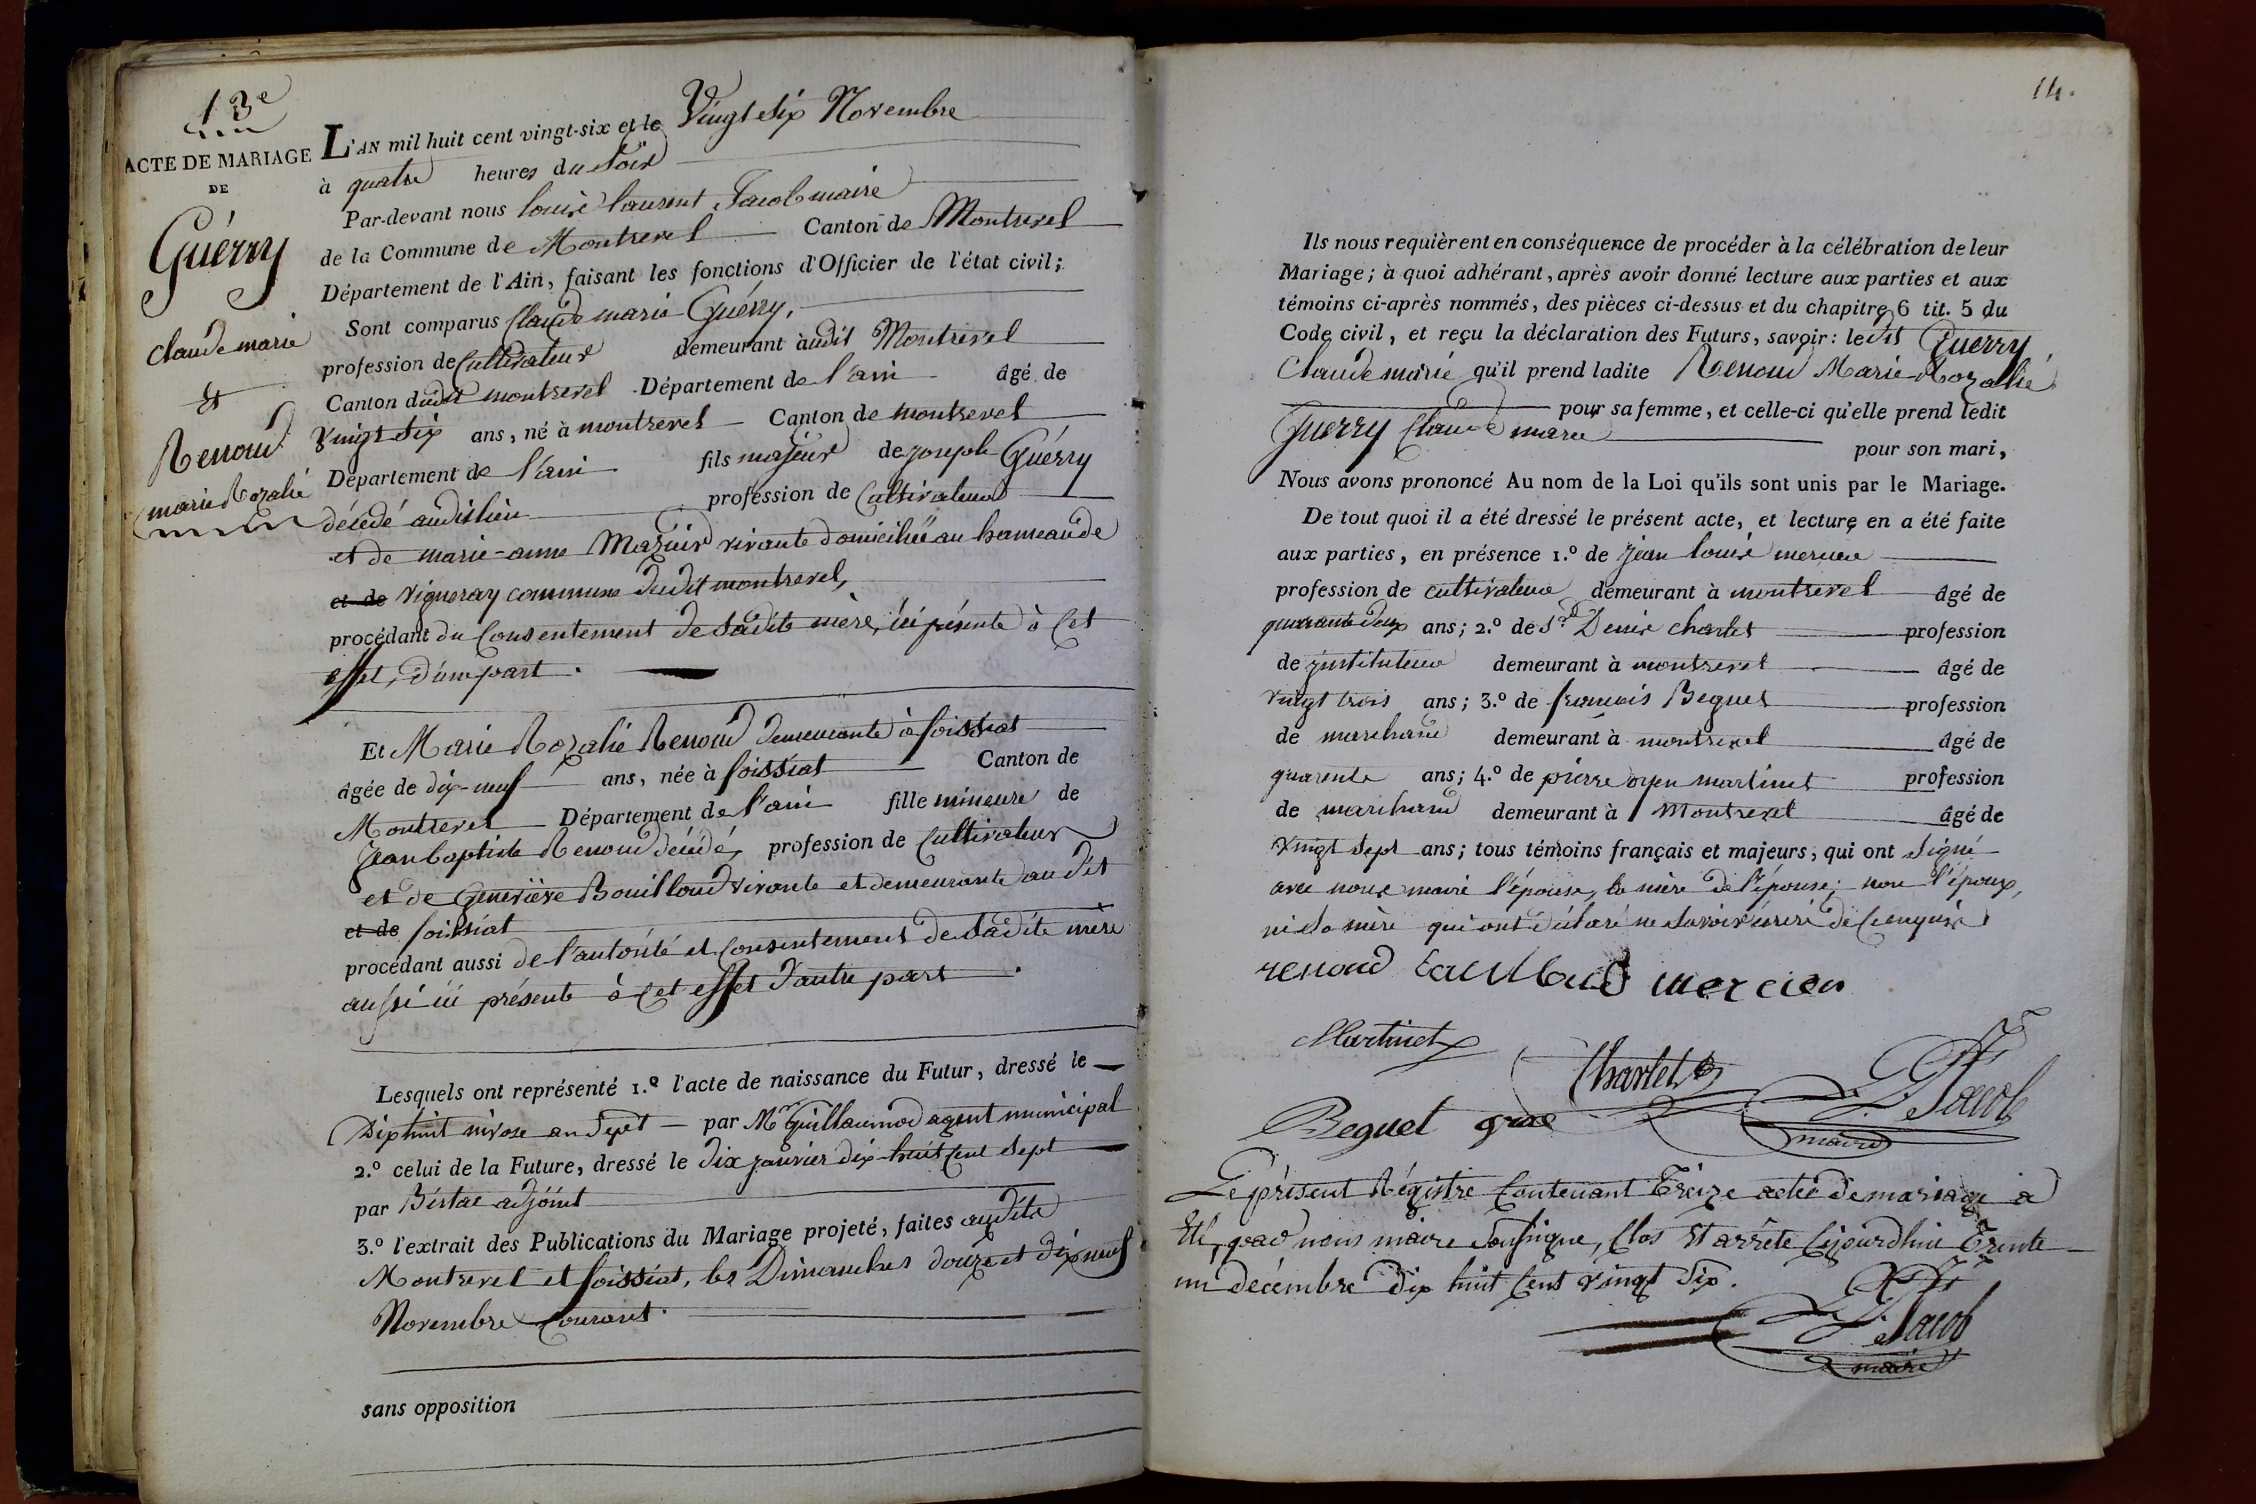 13e
ACTE DE MARIAGE
DE
Guérry
Claude marie
et
Renoud
marie Rozalie
L'AN mil huit cent vingt-six et le Vingt Six Novembre
à quatre heures du Soir
Par-devant nous louis laurent Jacob maire
de la Commune de Montrevel Canton de Montrevel
Département de l'Ain, faisant les fonctions d'Officier de l'état civil;
Sont comparus Claude marie Guérry,
profession de Cultivateur demeurant àudit Montrevel
Canton dudit montrevel Département de l'ain âgé de
Vingt Six ans, né à montrevel Canton de montrevel
Département de l'ain fils majeur de joseph Guérry
décédé audit lieu profession de Cultivateur
et de marie-anne Mazuir vivante domiciliée au hameau de
et de vigneray commune dudit montrevel,
procédant du Consentement de Sadite mère, ici présente à Cet
effet, d'une part.
Et Marie Rozalie Renoud demeurante à foissiat
âgée de dix-neuf ans, née à foissiat Canton de
Montrevel Département de l'ain fille mineure de
Jean baptiste Renoud décédé, profession de Cultivateur
et de Geneviève Bouilloud vivante et demeurante au dit
et de foissiat
procédant aussi de l'autorité et Consentement de Sadite mère
aussi ici présente à Cet effet d'autre part.
Lesquels ont représenté 1.º l'acte de naissance du Futur, dressé le
Dix huit nivose an Sept par Mr Guillaumod agent municipal
2.º celui de la Future, dressé le dix janvier dix-huit Cent Sept
par adjoint
3.º l'extrait des Publications du Mariage projeté, faites audits
Montrevel et foissiat, les Dimanches douze et dix neuf
Novembre Courant.
sans opposition
14.
Ils nous requièrent en conséquence de procéder à la célébration de leur
Mariage; à quoi adhérant, après avoir donné lecture aux parties et aux
témoins ci-après nommés, des pièces ci-dessus et du chapitre 6 tit. 5 du
Code civil, et reçu la déclaration des Futurs, savoir: ledit Guerry
Claude marie qu'il prend ladite Renoud Marie Rozalie
pour sa femme, et celle-ci qu'elle prend ledit
Guerry Claude marie
pour son mari,
Nous avons prononcé Au nom de la Loi qu'ils sont unis par le Mariage.
De tout quoi il a été dressé le présent acte, et lecture en a été faite
aux parties, en présence 1.º de Jean louis
profession de cultivateur demeurant à montrevel âgé de
quarante deux ans; 2.º de Sr Denis charlet profession
de jnstituteur demeurant à montrevel âgé de
vingt trois ans; 3.º de francois Beguet profession
de marchand demeurant à montrevel âgé de
quarente ans; 4.º de pierre martinet profession
de marchand demeurant à Montrevel âgé de
vingt sept ans; tous témoins français et majeurs, qui ont Signé
avec nous maire l'épouse, la mère de l'épouse, non l'époux,
ni Sa mère qui ont déclaré ne Savoir écrire de Ce enquis
renoud mercier
Martinet
Charlet
L. Jacob
maire
Beguet
Le présent Régistre Contenant Treize actes de mariage a
Eté, par nous maire Soussigné, Clos Et arrêté Cejourdhui Trente
un decémbre dix huit Cent vingt Six.
L. Jacob
maire